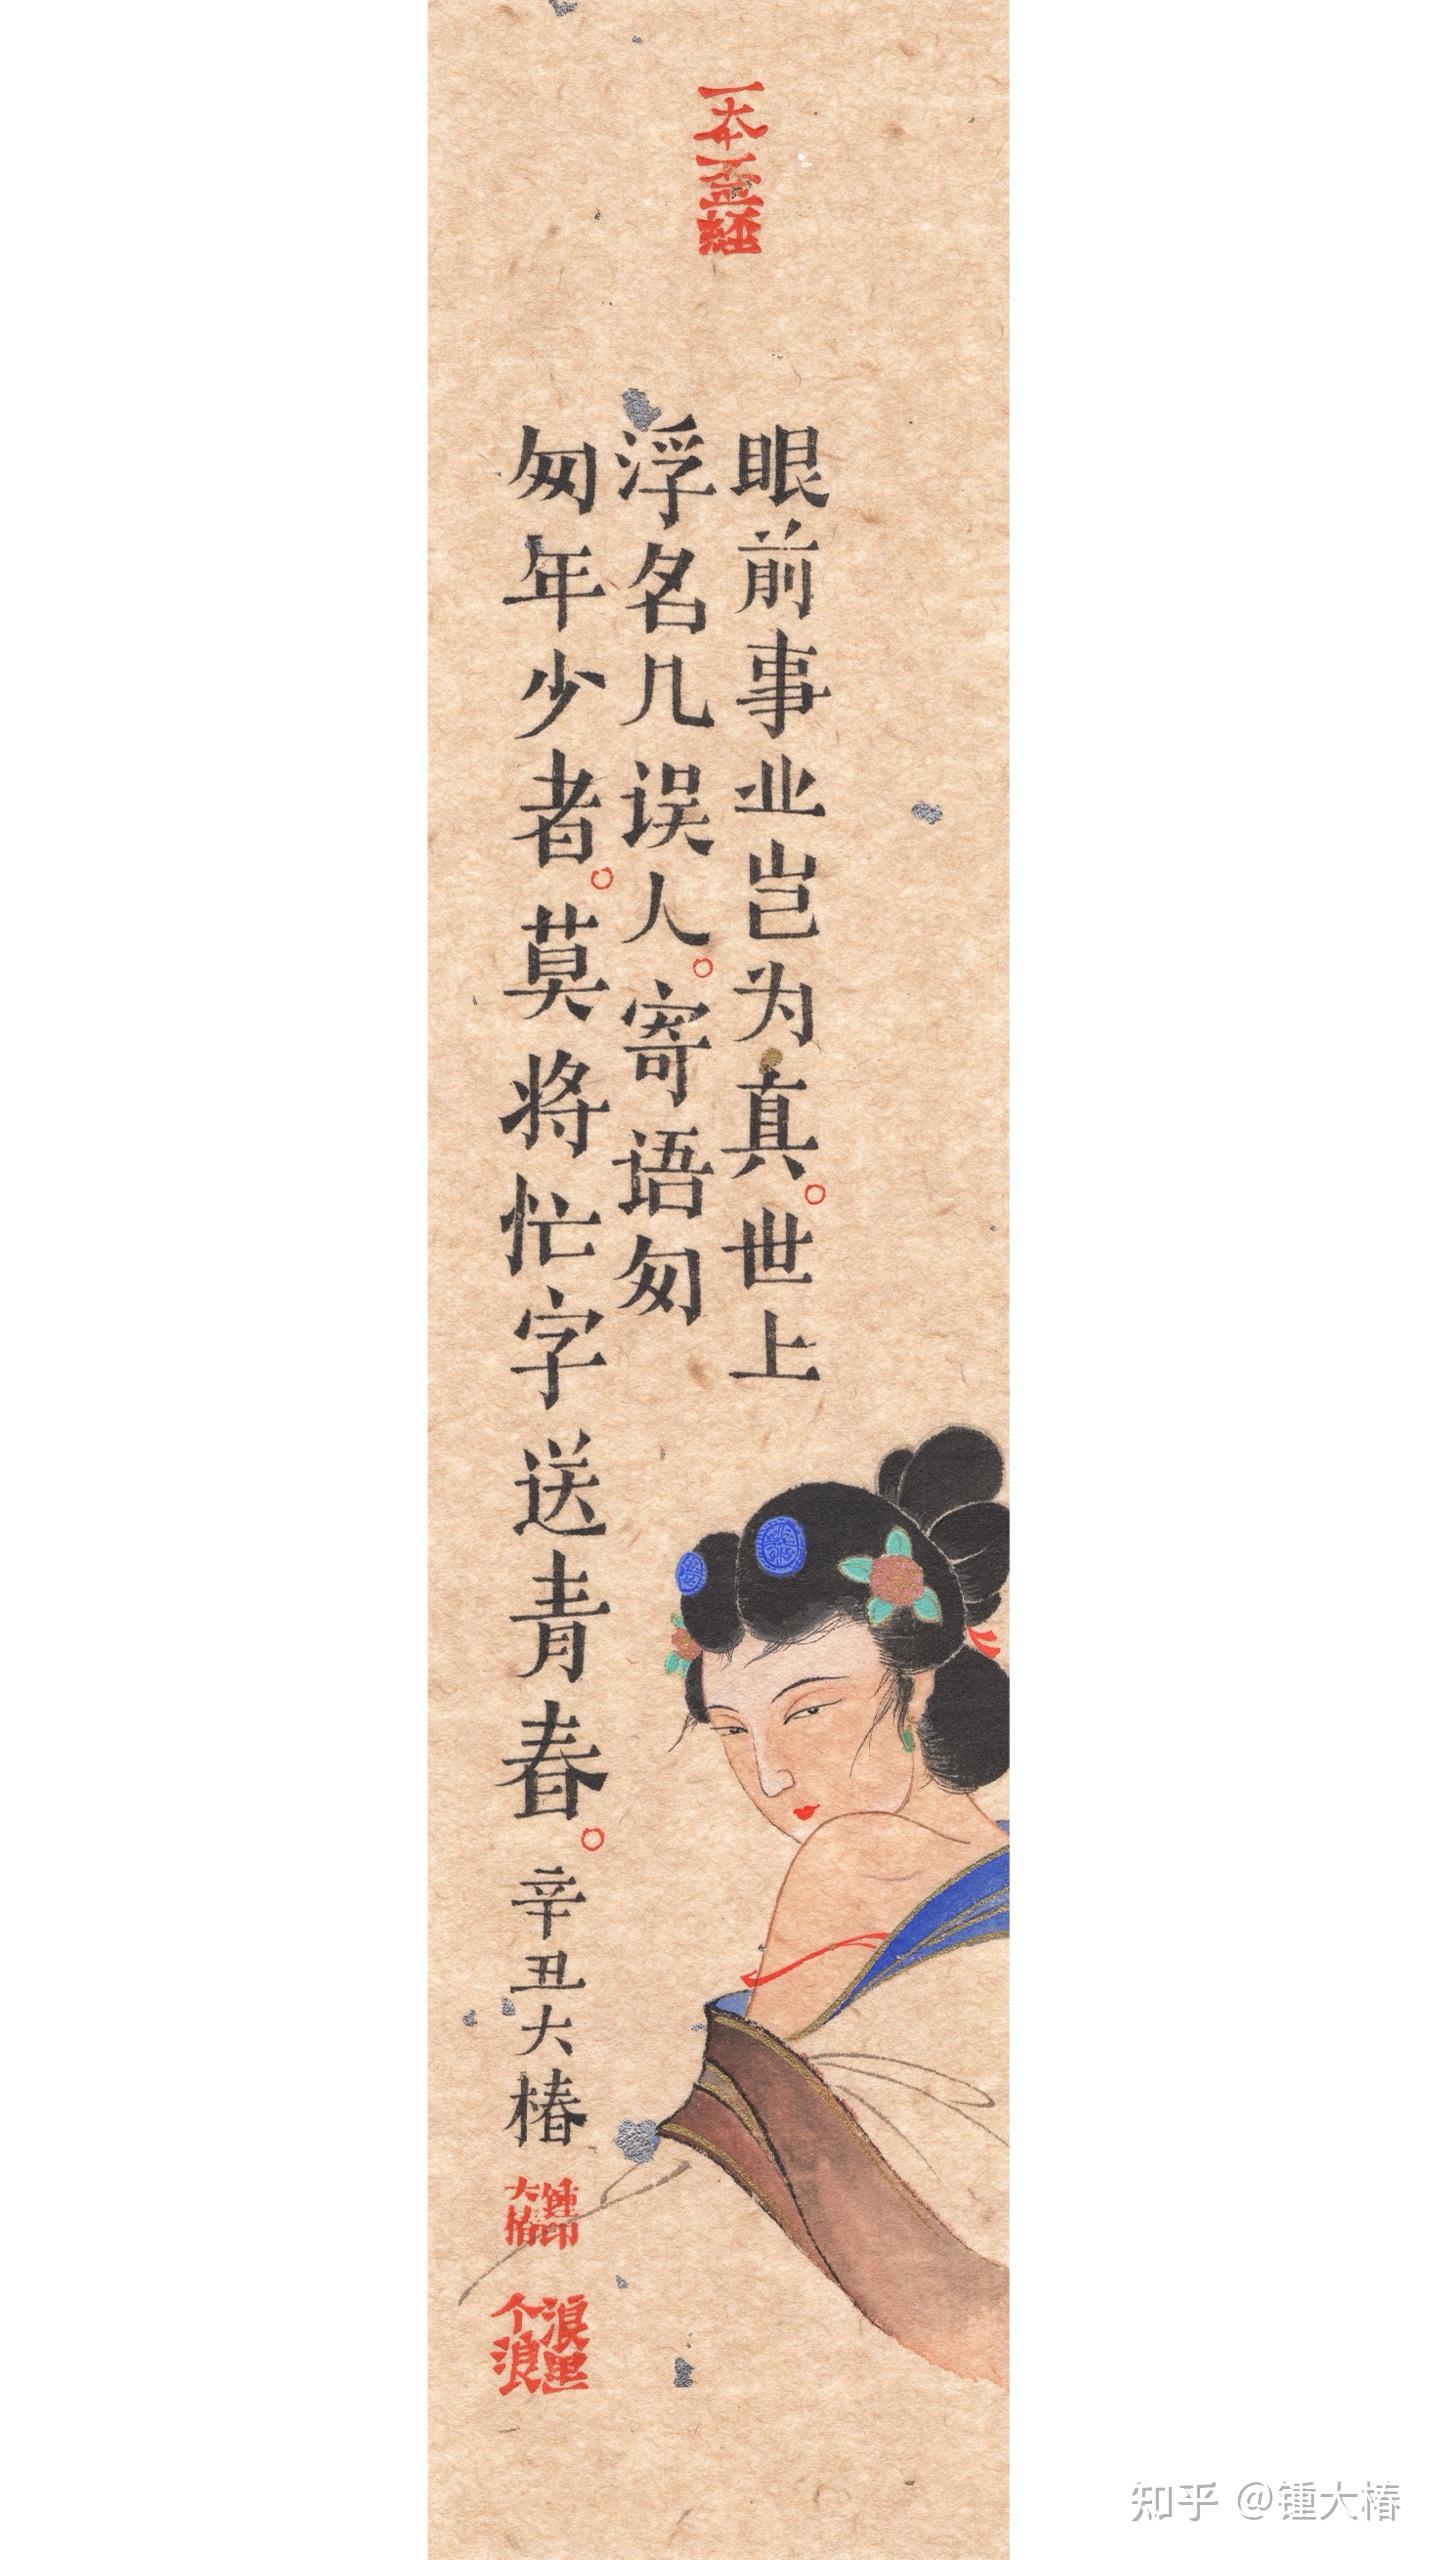 一本歪经
眼前事业岂为真。世上
浮名几误人。寄语匆
匆年少者。莫将忙字送青春。
辛丑大椿
锺印大椿
浪里个浪
知乎 @锺大椿